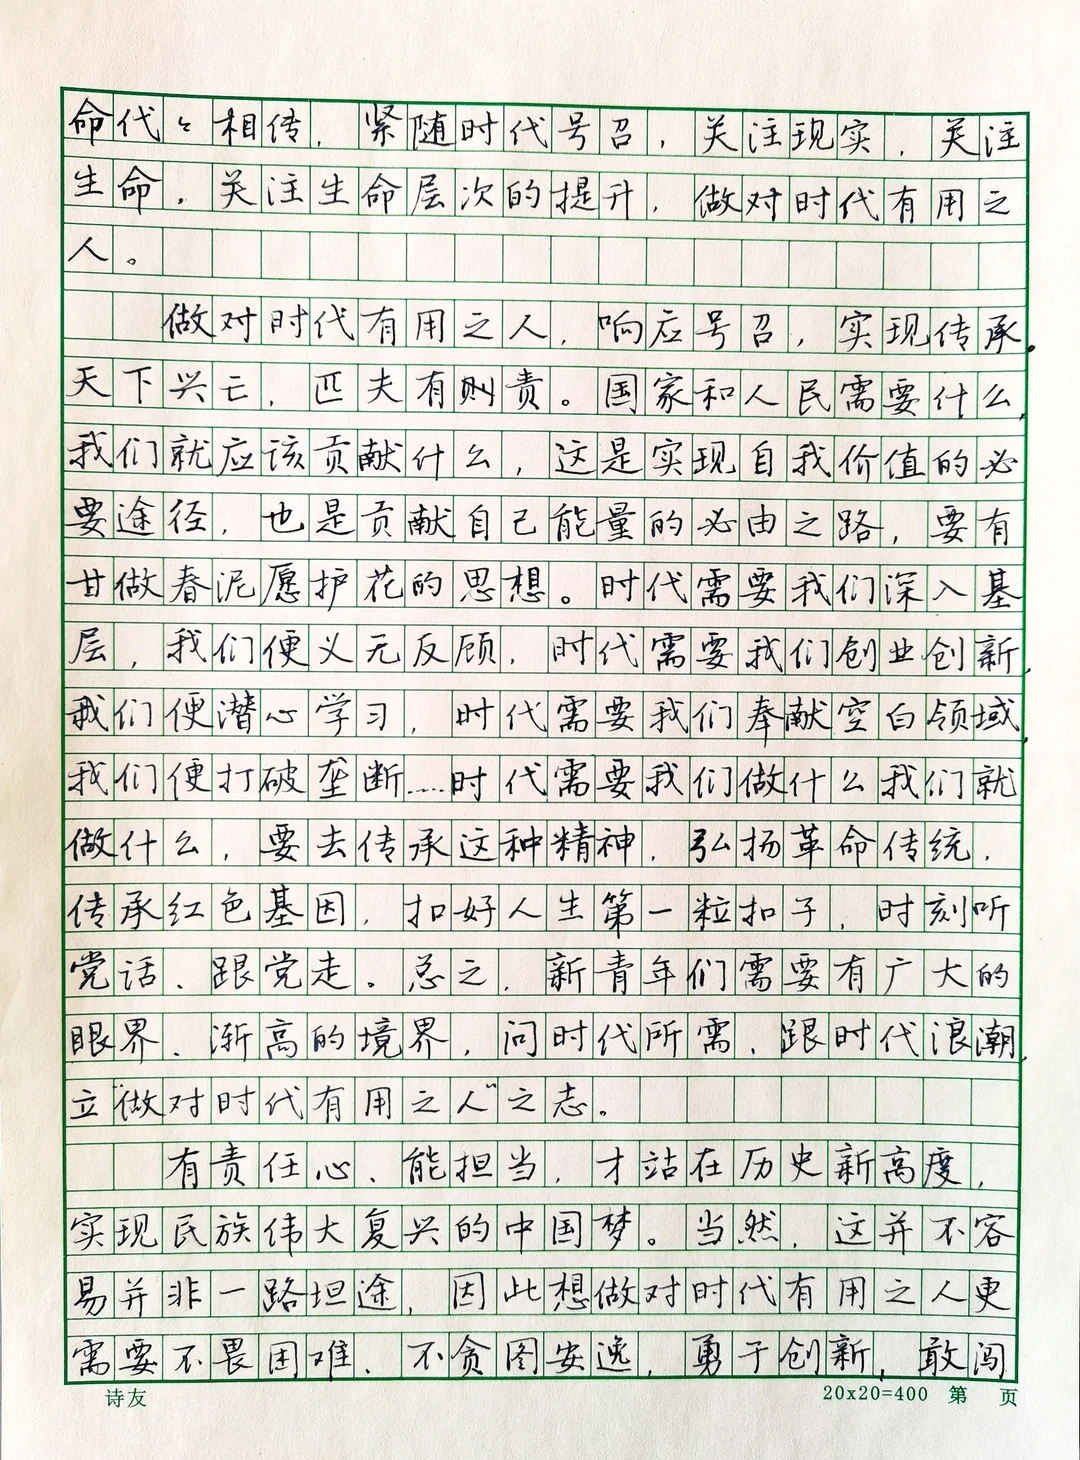 命代々相传，紧随时代号召，关注现实，关注
生命，关注生命层次的提升，做对时代有用之
人。
做对时代有用之人，响应号召，实现传承，
天下兴亡，匹夫有则责。国家和人民需要什么，
我们就应该贡献什么，这是实现自我价值的必
要途径，也是贡献自己能量的必由之路，要有
甘做春泥愿护花的思想。时代需要我们深入基
层，我们便义无反顾，时代需要我们创业创新，
我们便潜心学习，时代需要我们奉献空白领域，
我们便打破垄断……时代需要我们做什么我们就
做什么，要去传承这种精神，弘扬革命传统，
传承红色基因，扣好人生第一粒扣子，时刻听
党话、跟党走。总之，新青年们需要有广大的
眼界、渐高的境界，问时代所需、跟时代浪潮，
立“做对时代有用之人”之志。
有责任心、能担当，才站在历史新高度，
实现民族伟大复兴的中国梦。当然，这并不容
易并非一路坦途，因此想做对时代有用之人更
需要不畏困难、不贪图安逸，勇于创新，敢闯
诗友 20x20=400 第 页